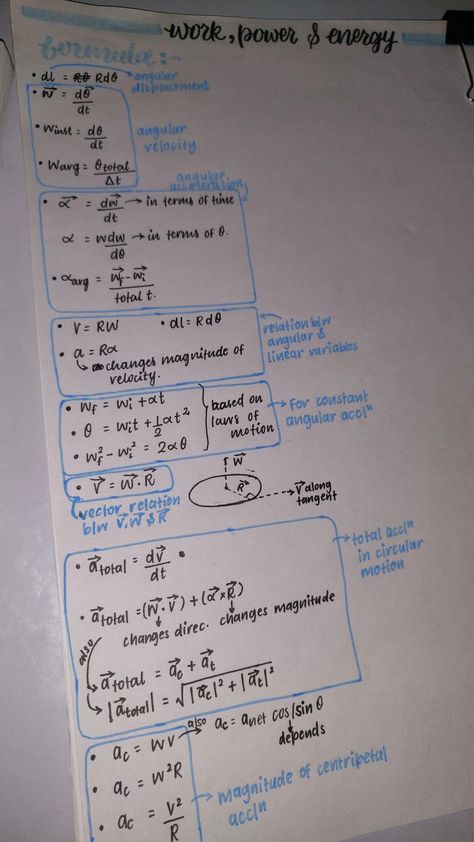 work, power & energy
formula:-
• dl = Rdθ → angular displacement
• w⃗ = dθ⃗/dt
• Winst = dθ/dt
angular velocity
• Warg = θtotal/Δt
angular acceleration
• α⃗ = dw⃗/dt → in terms of time
α = wdw/dθ → in terms of θ.
• α⃗arg = (w⃗f - w⃗i)/total t.
• V = RW • dl = Rdθ
• a = Rα
↳ changes magnitude of velocity.
relation b/w angular & linear variables
• Wf = Wi + αt
• θ = Wit + 1/2 αt²
• Wf² - Wi² = 2αθ
based on laws of motion
→ For constant angular acclⁿ
• V⃗ = W⃗ · R⃗
vector relation b/w V⃗, W⃗ & R⃗
W⃗
R⃗
V⃗ along tangent
• a⃗total = dv⃗/dt •
total acclⁿ in circular motion
• a⃗total = (W⃗ · V⃗) + (α⃗ × R⃗)
changes direc. changes magnitude
also
a⃗total = a⃗c + a⃗t
|a⃗total| = √|a⃗c|² + |a⃗t|²
• ac = WV also ac = anet cos/sin θ
depends
• ac = W²R
• ac = V²/R
→ magnitude of centripetal acclⁿ